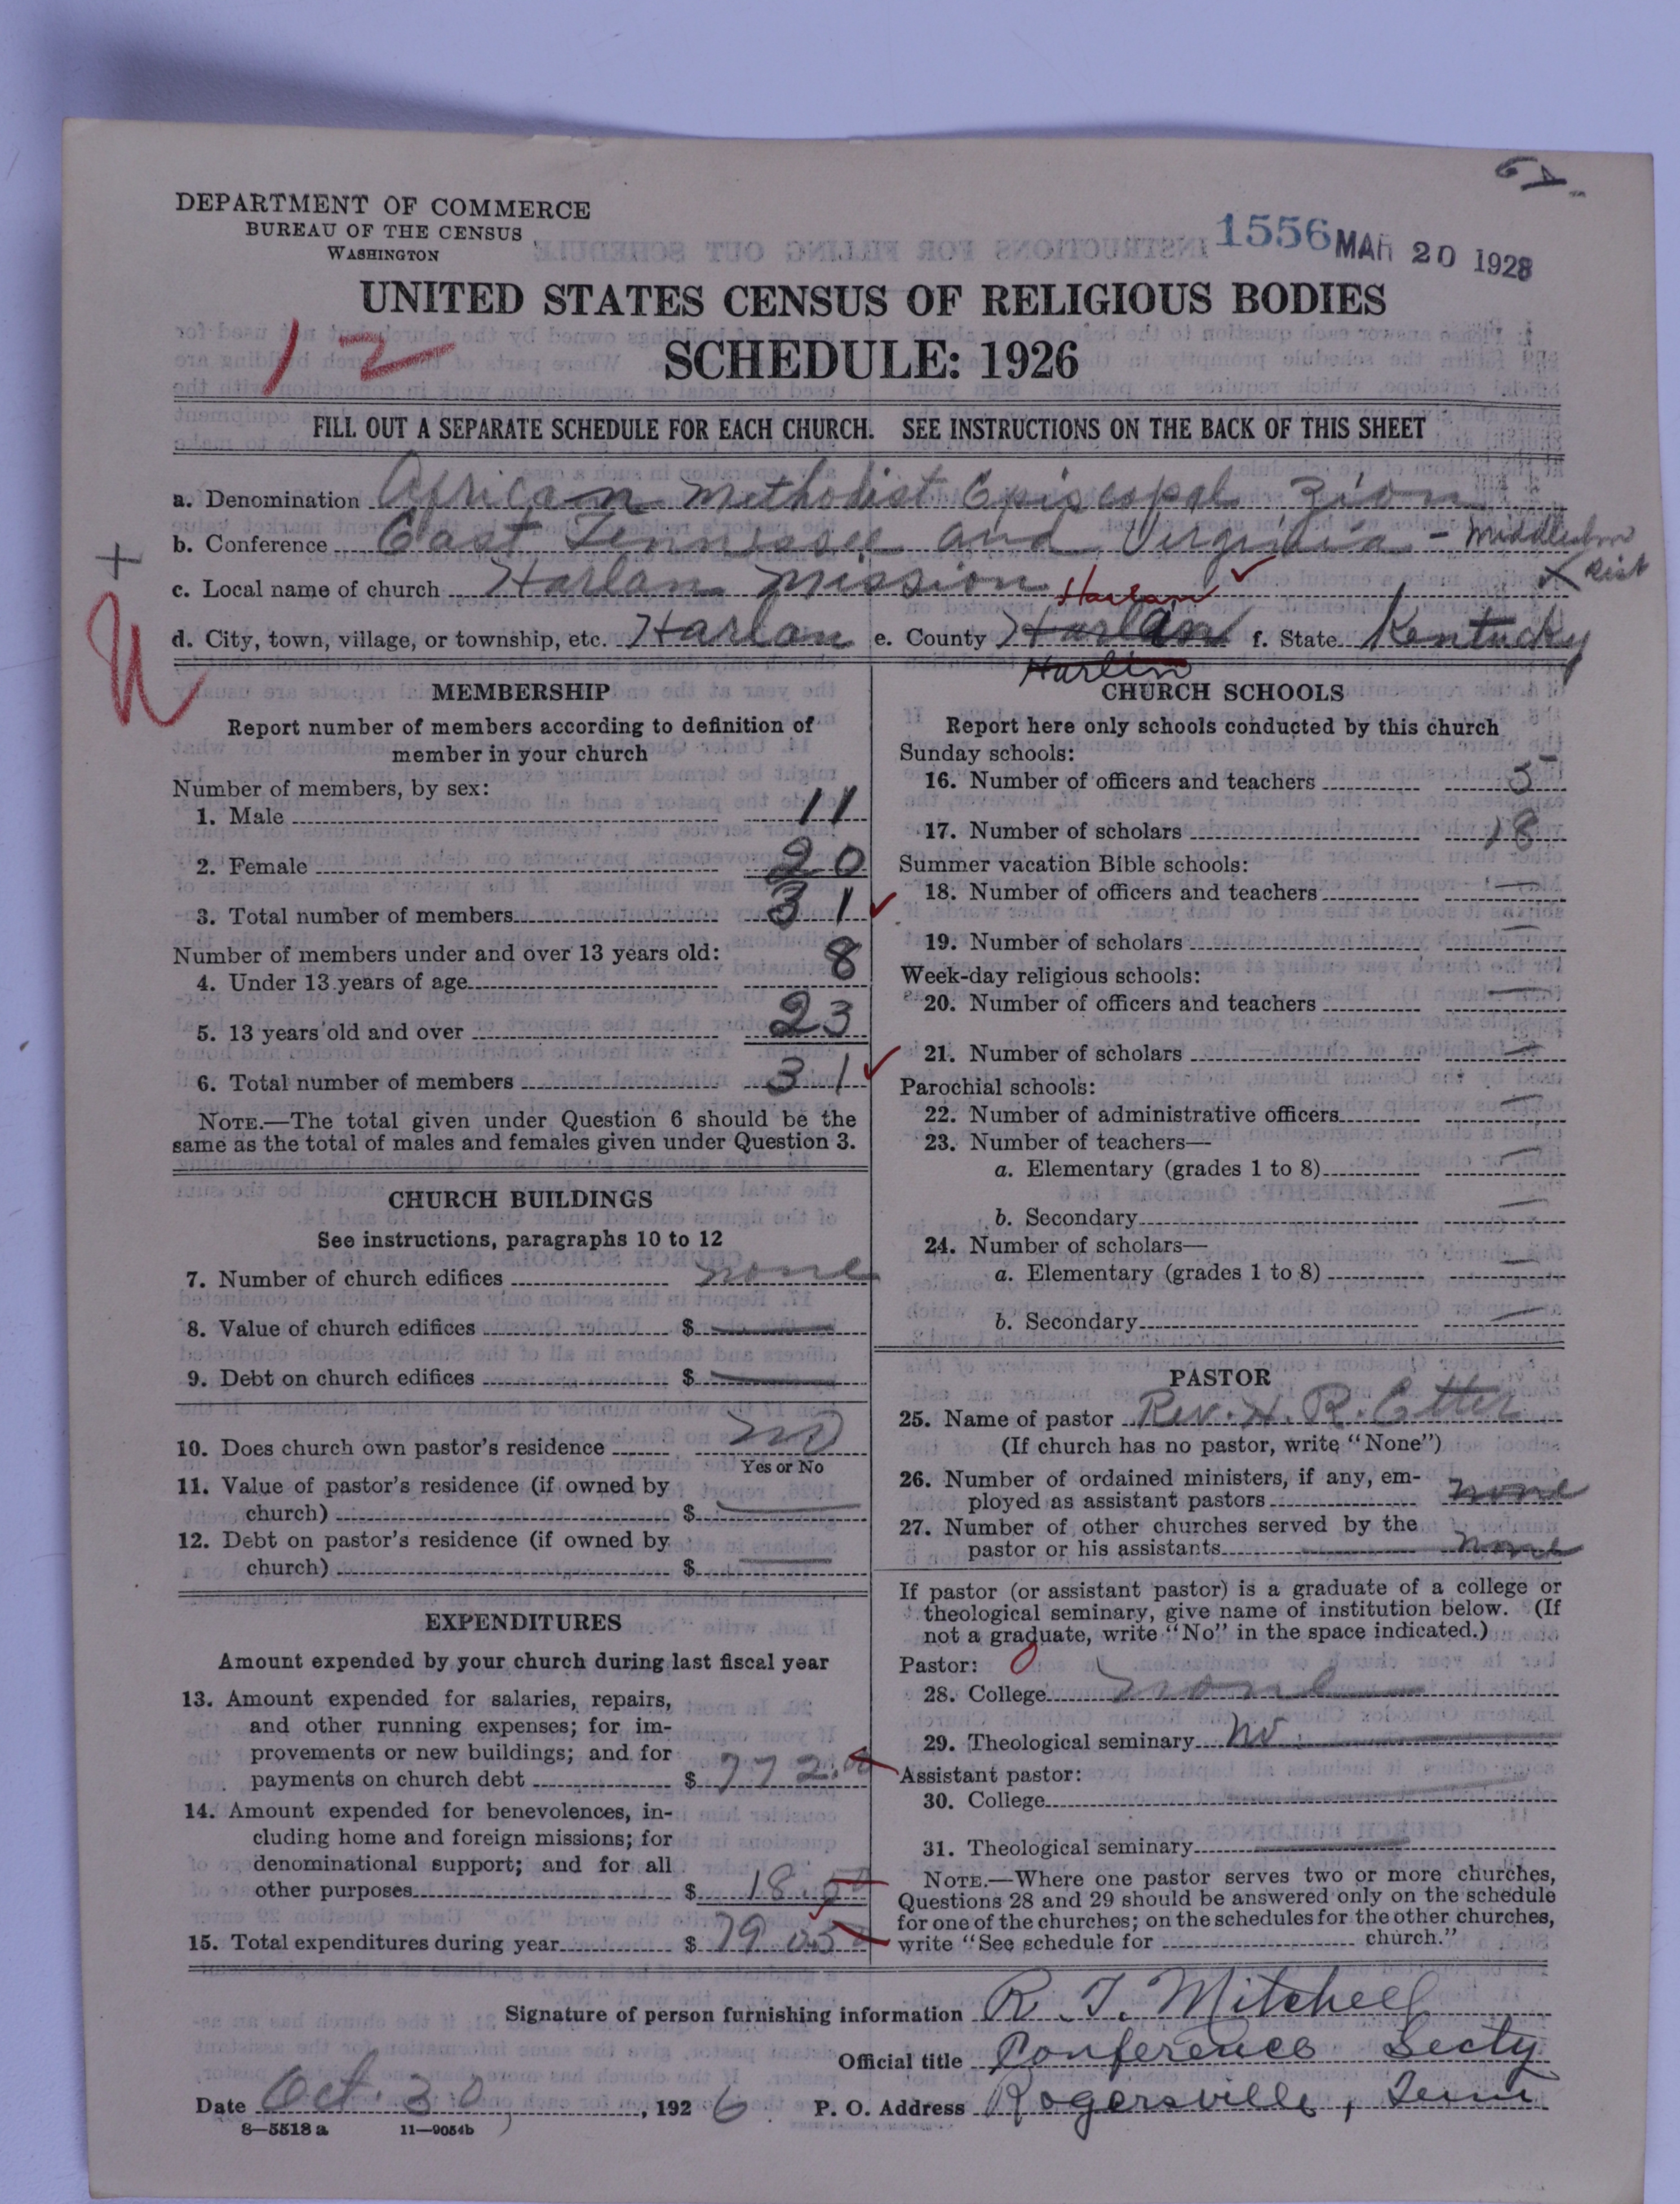 DEPARTMENT OF COMMERCE
BUREAU OF THE CENSUS
WASHINGTON
1556 MAR 20 1928
UNITED STATES CENSUS OF RELIGIOUS BODIES
12
SCHEDULE: 1926
FILL OUT A SEPARATE SCHEDULE FOR EACH CHURCH. SEE INSTRUCTIONS ON THE BACK OF THIS SHEET
a. Denomination African Methodist Episcopal Zion
b. Conference East Tennessee and Virginia - Dist
c. Local name of church Harlan Mission
Harlan
d. City, town, village, or township, etc. Harlan e. County Harlan f. State Kentucky
Harlin
MEMBERSHIP
Report number of members according to definition of
member in your church
Number of members, by sex:
1. Male 11
2. Female 20
3. Total number of members 31
Number of members under and over 13 years old:
4. Under 13 years of age 8
5. 13 years old and over 23
6. Total number of members 31
NOTE.—The total given under Question 6 should be the
same as the total of males and females given under Question 3.
CHURCH BUILDINGS
See instructions, paragraphs 10 to 12
7. Number of church edifices none
8. Value of church edifices $ —
9. Debt on church edifices $ —
10. Does church own pastor's residence no
Yes or No
11. Value of pastor's residence (if owned by
church) $ —
12. Debt on pastor's residence (if owned by
church) $ —
EXPENDITURES
Amount expended by your church during last fiscal year
13. Amount expended for salaries, repairs,
and other running expenses; for im-
provements or new buildings; and for
payments on church debt $ 772.00
14. Amount expended for benevolences, in-
cluding home and foreign missions; for
denominational support; and for all
other purposes $ 18.50
15. Total expenditures during year $ 790.50
CHURCH SCHOOLS
Report here only schools conducted by this church
Sunday schools:
16. Number of officers and teachers 5
17. Number of scholars 18
Summer vacation Bible schools:
18. Number of officers and teachers —
19. Number of scholars —
Week-day religious schools:
20. Number of officers and teachers —
21. Number of scholars —
Parochial schools:
22. Number of administrative officers —
23. Number of teachers—
a. Elementary (grades 1 to 8) —
b. Secondary —
24. Number of scholars—
a. Elementary (grades 1 to 8) —
b. Secondary —
PASTOR
25. Name of pastor Rev. H. R. Etter
(If church has no pastor, write "None")
26. Number of ordained ministers, if any, em-
ployed as assistant pastors none
27. Number of other churches served by the
pastor or his assistants none
If pastor (or assistant pastor) is a graduate of a college or
theological seminary, give name of institution below. (If
not a graduate, write "No" in the space indicated.)
Pastor: 0
28. College none
29. Theological seminary no
Assistant pastor:
30. College —
31. Theological seminary —
NOTE.—Where one pastor serves two or more churches,
Questions 28 and 29 should be answered only on the schedule
for one of the churches; on the schedules for the other churches,
write "See schedule for church."
Signature of person furnishing information R. J. Mitchell
Official title Conference Secty
Date Oct. 30, 1926 P. O. Address Rogersville, Tenn
8—5518 a 11—9054b